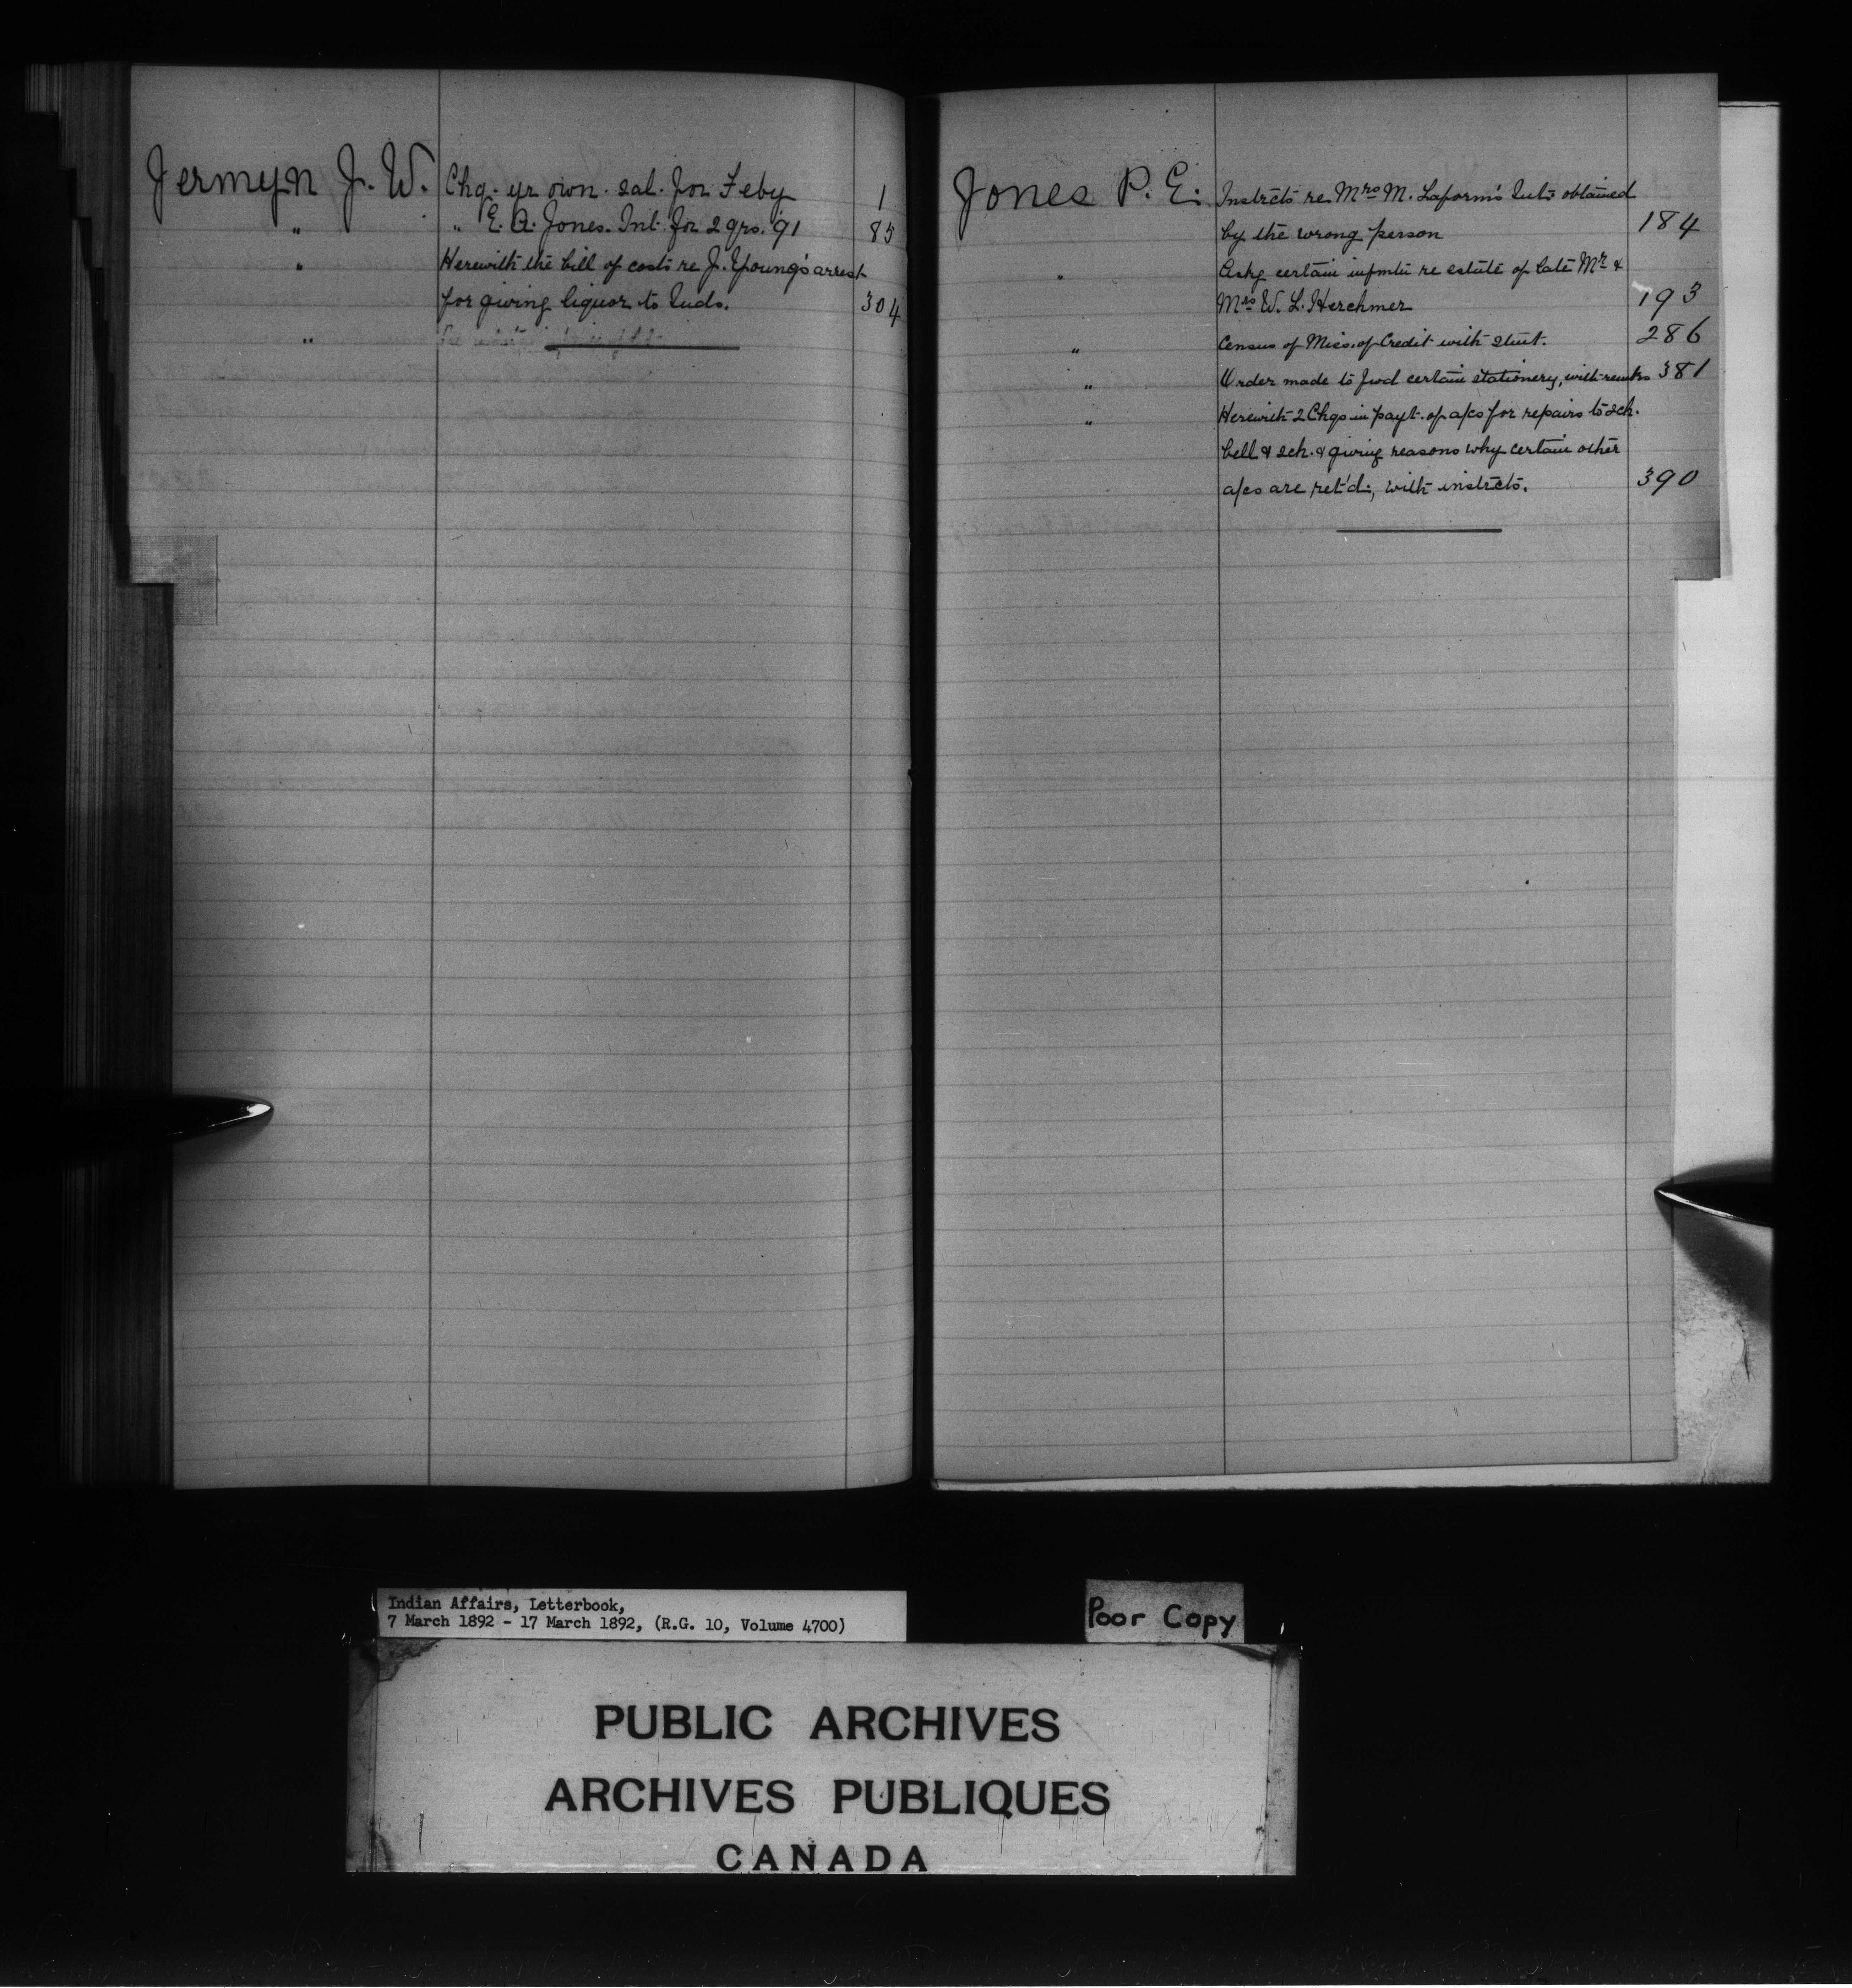 Jermyn J. W. Chq. yr own. sal. for Feby 1
" " E. A. Jones. Int. for 2 qrs. 91 85
" Herewith the bill of costs re J. Young's arrest
for giving liquor to Inds. 304
"
Jones P. E. Instrcts re Mrs M. Laform's Int: obtained
by the wrong person 184
" Askg certain infmtn re estate of late Mr &
Mrs W. L. Herchmer 193
" Census of Miss. of Credit with stmt. 286
" Order made to fwd certain stationery, with remks 381
" Herewith 2 Chqs in payt. of a/cs for repairs to sch.
bell & sch. & giving reasons why certain other
a/cs are ret'd:, with instrcts. 390
Indian Affairs, Letterbook,
7 March 1892 - 17 March 1892, (R.G. 10, Volume 4700)
Poor Copy
PUBLIC ARCHIVES
ARCHIVES PUBLIQUES
CANADA